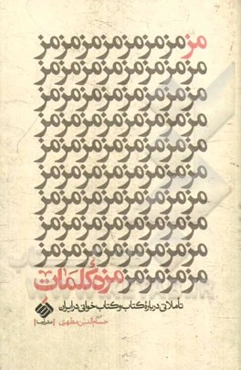 مزمزمزمزمزمزمزمز
مزمزمزمزمزمزمزمز
مزمزمزمزمزمزمزمز
مزمزمزمزمزمزمزمز
مزمزمزمزمزمزمزمز
مزمزمزمزمزمزمزمز
مزمزمزمزمزمزمزمز
مزمزمزمزمزمزمزمز
مزمزمزمزمزمزمزمز
مزمزمزمزهٔ کلمات
تأملاتی دربارهٔ کتاب و کتاب‌خوانی در ایران
حسام‌الدین مطهری